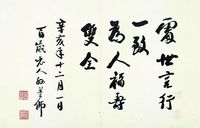 处世言行
一致
为人福寿
双全
辛亥年十二月一日
百岁老人孙墨佛